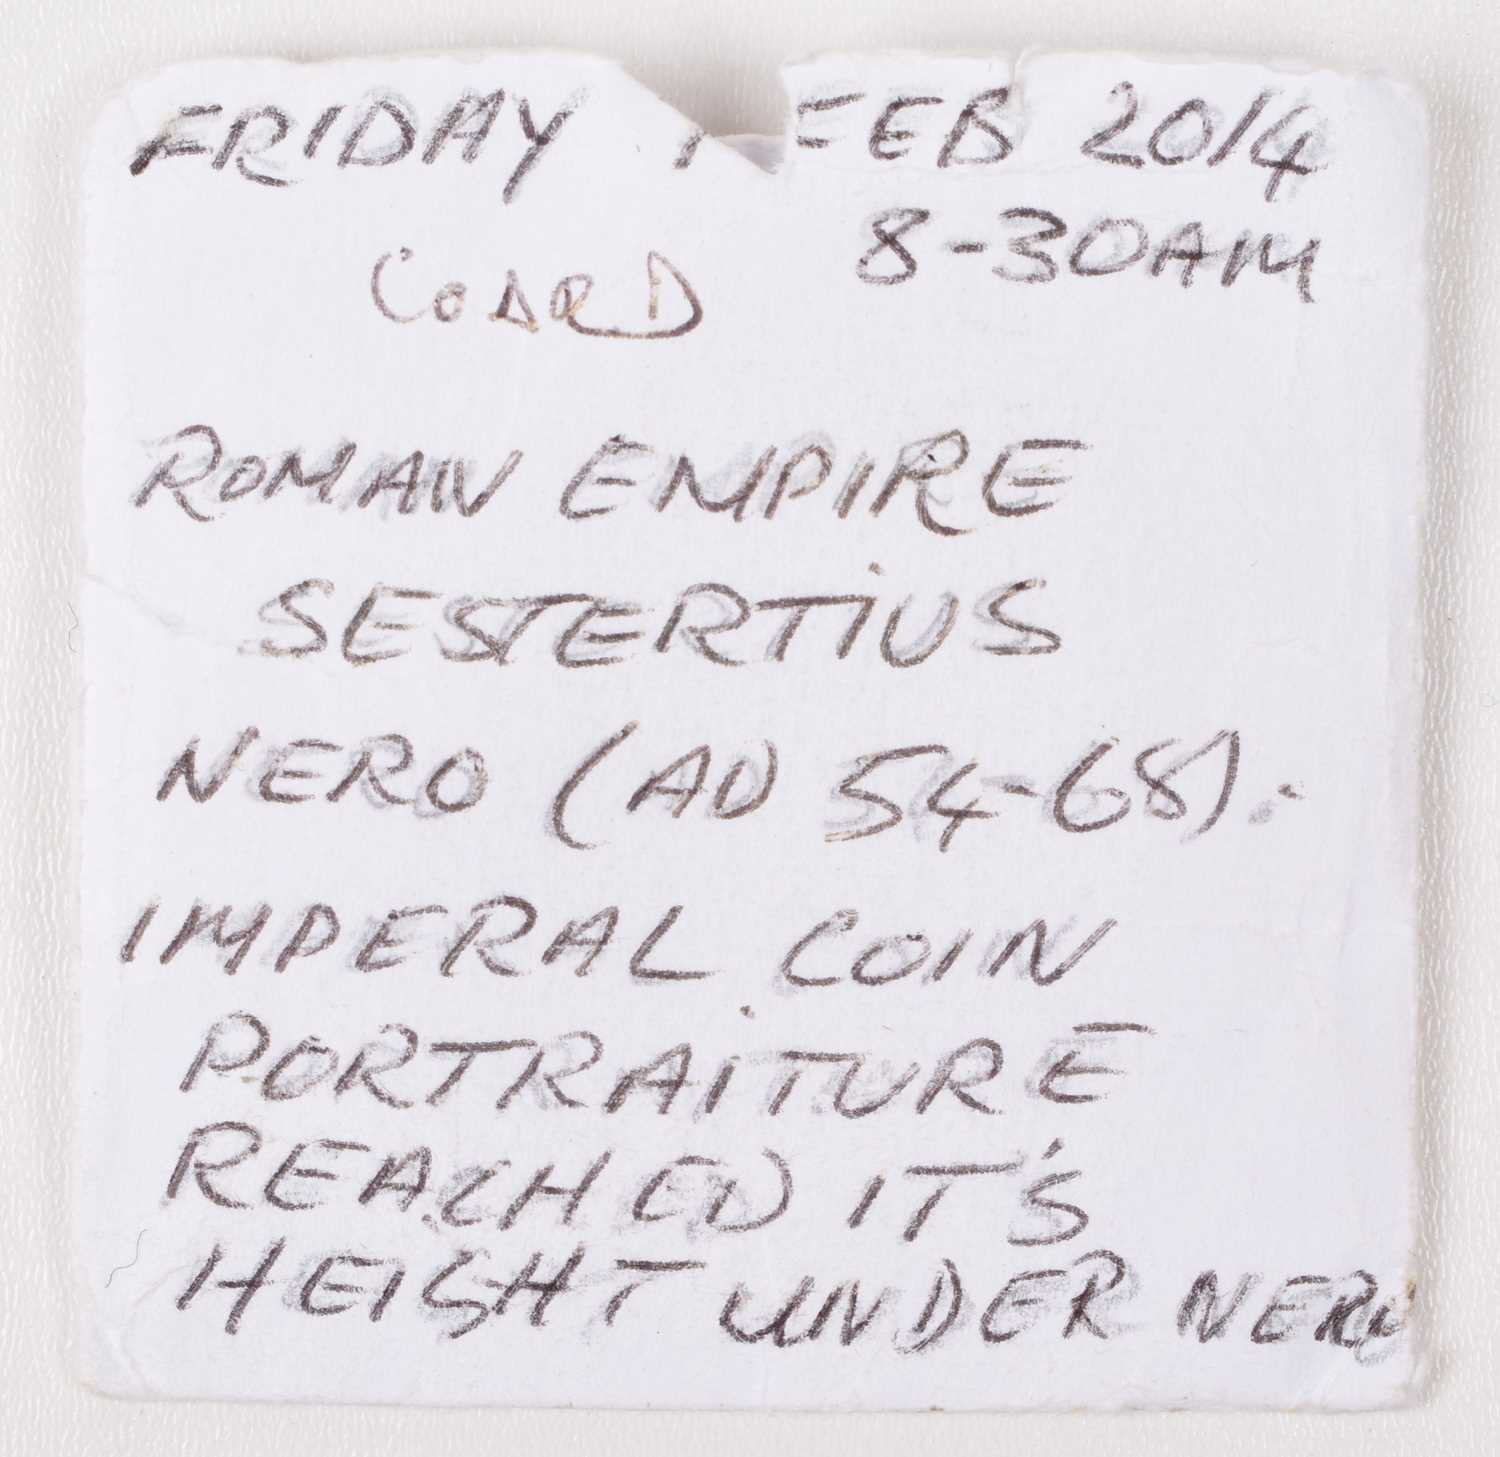 FRIDAY FEB 2014
8-30AM
COARD
ROMAN EMPIRE
SESTERTIUS
NERO (AD 54-68).
IMPERAL COIN
PORTRAITURE
REACHED IT'S
HEIGHT UNDER NERO